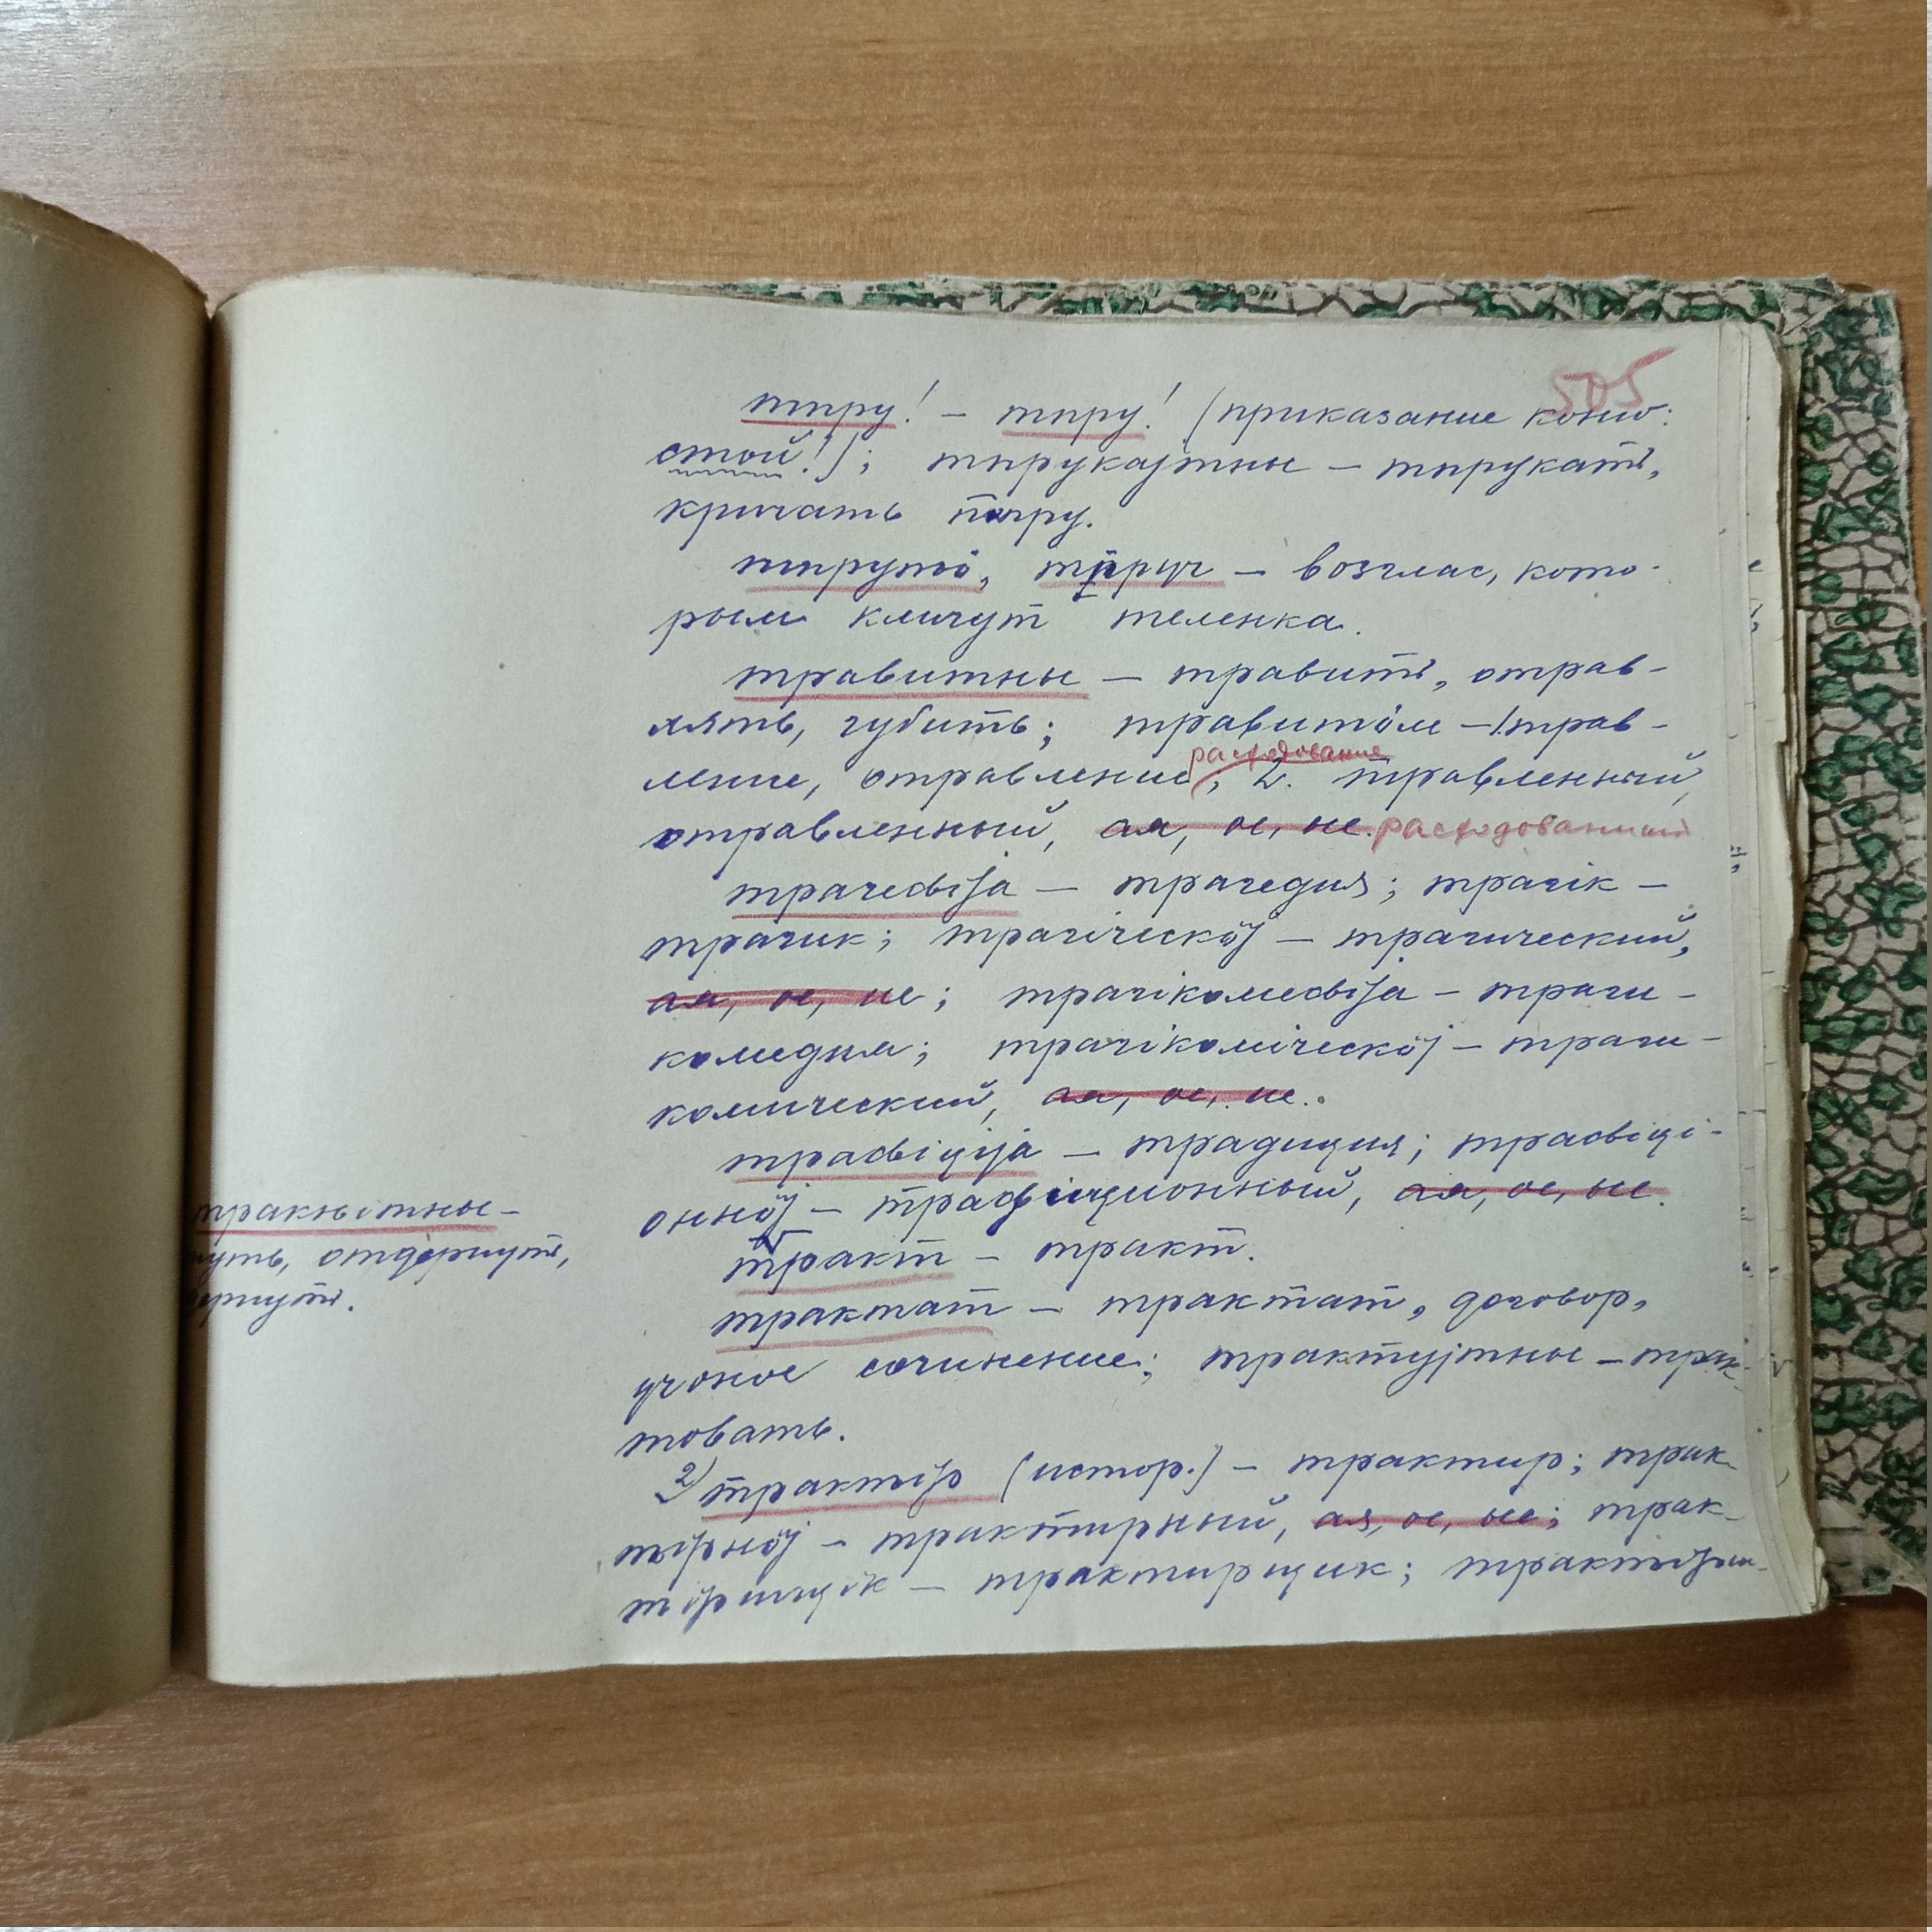 505
тпру! – тпру! (приказание коню:
стой!); тпрукајтны – тпрукать,
кричать тпру.
тпрутьӧ, тпруч – возглас, кото-
рым кличут теленка.
травитны – травить, отрав-
лять, губить; травитӧм – 1. трав-
расходование
ление, отравление, 2. травленный,
отравленный, ая, ое, ые. расходованный
трагеԃіја – трагедия; трагік –
трагик; трагіческӧј – трагический,
ая, ое, ие; трагікомеԃіја – траги-
комедия; трагікоміческӧј – траги-
комический, ая, ое, ие.
траԃіціја – традиция; траԃіці-
оннӧј – традиционный, ая, ое, ые.
тракт – тракт.
трактат – трактат, договор,
учоное сочинение; трактујтны – трак-
товать.
2) трактір (истор.) – трактир; трак-
тірнӧј – трактирный, ая, ое, ые; трак-
тірщік – трактирщик; трактірш-
тракнітны –
нуть, отдернуть,
дернуть.